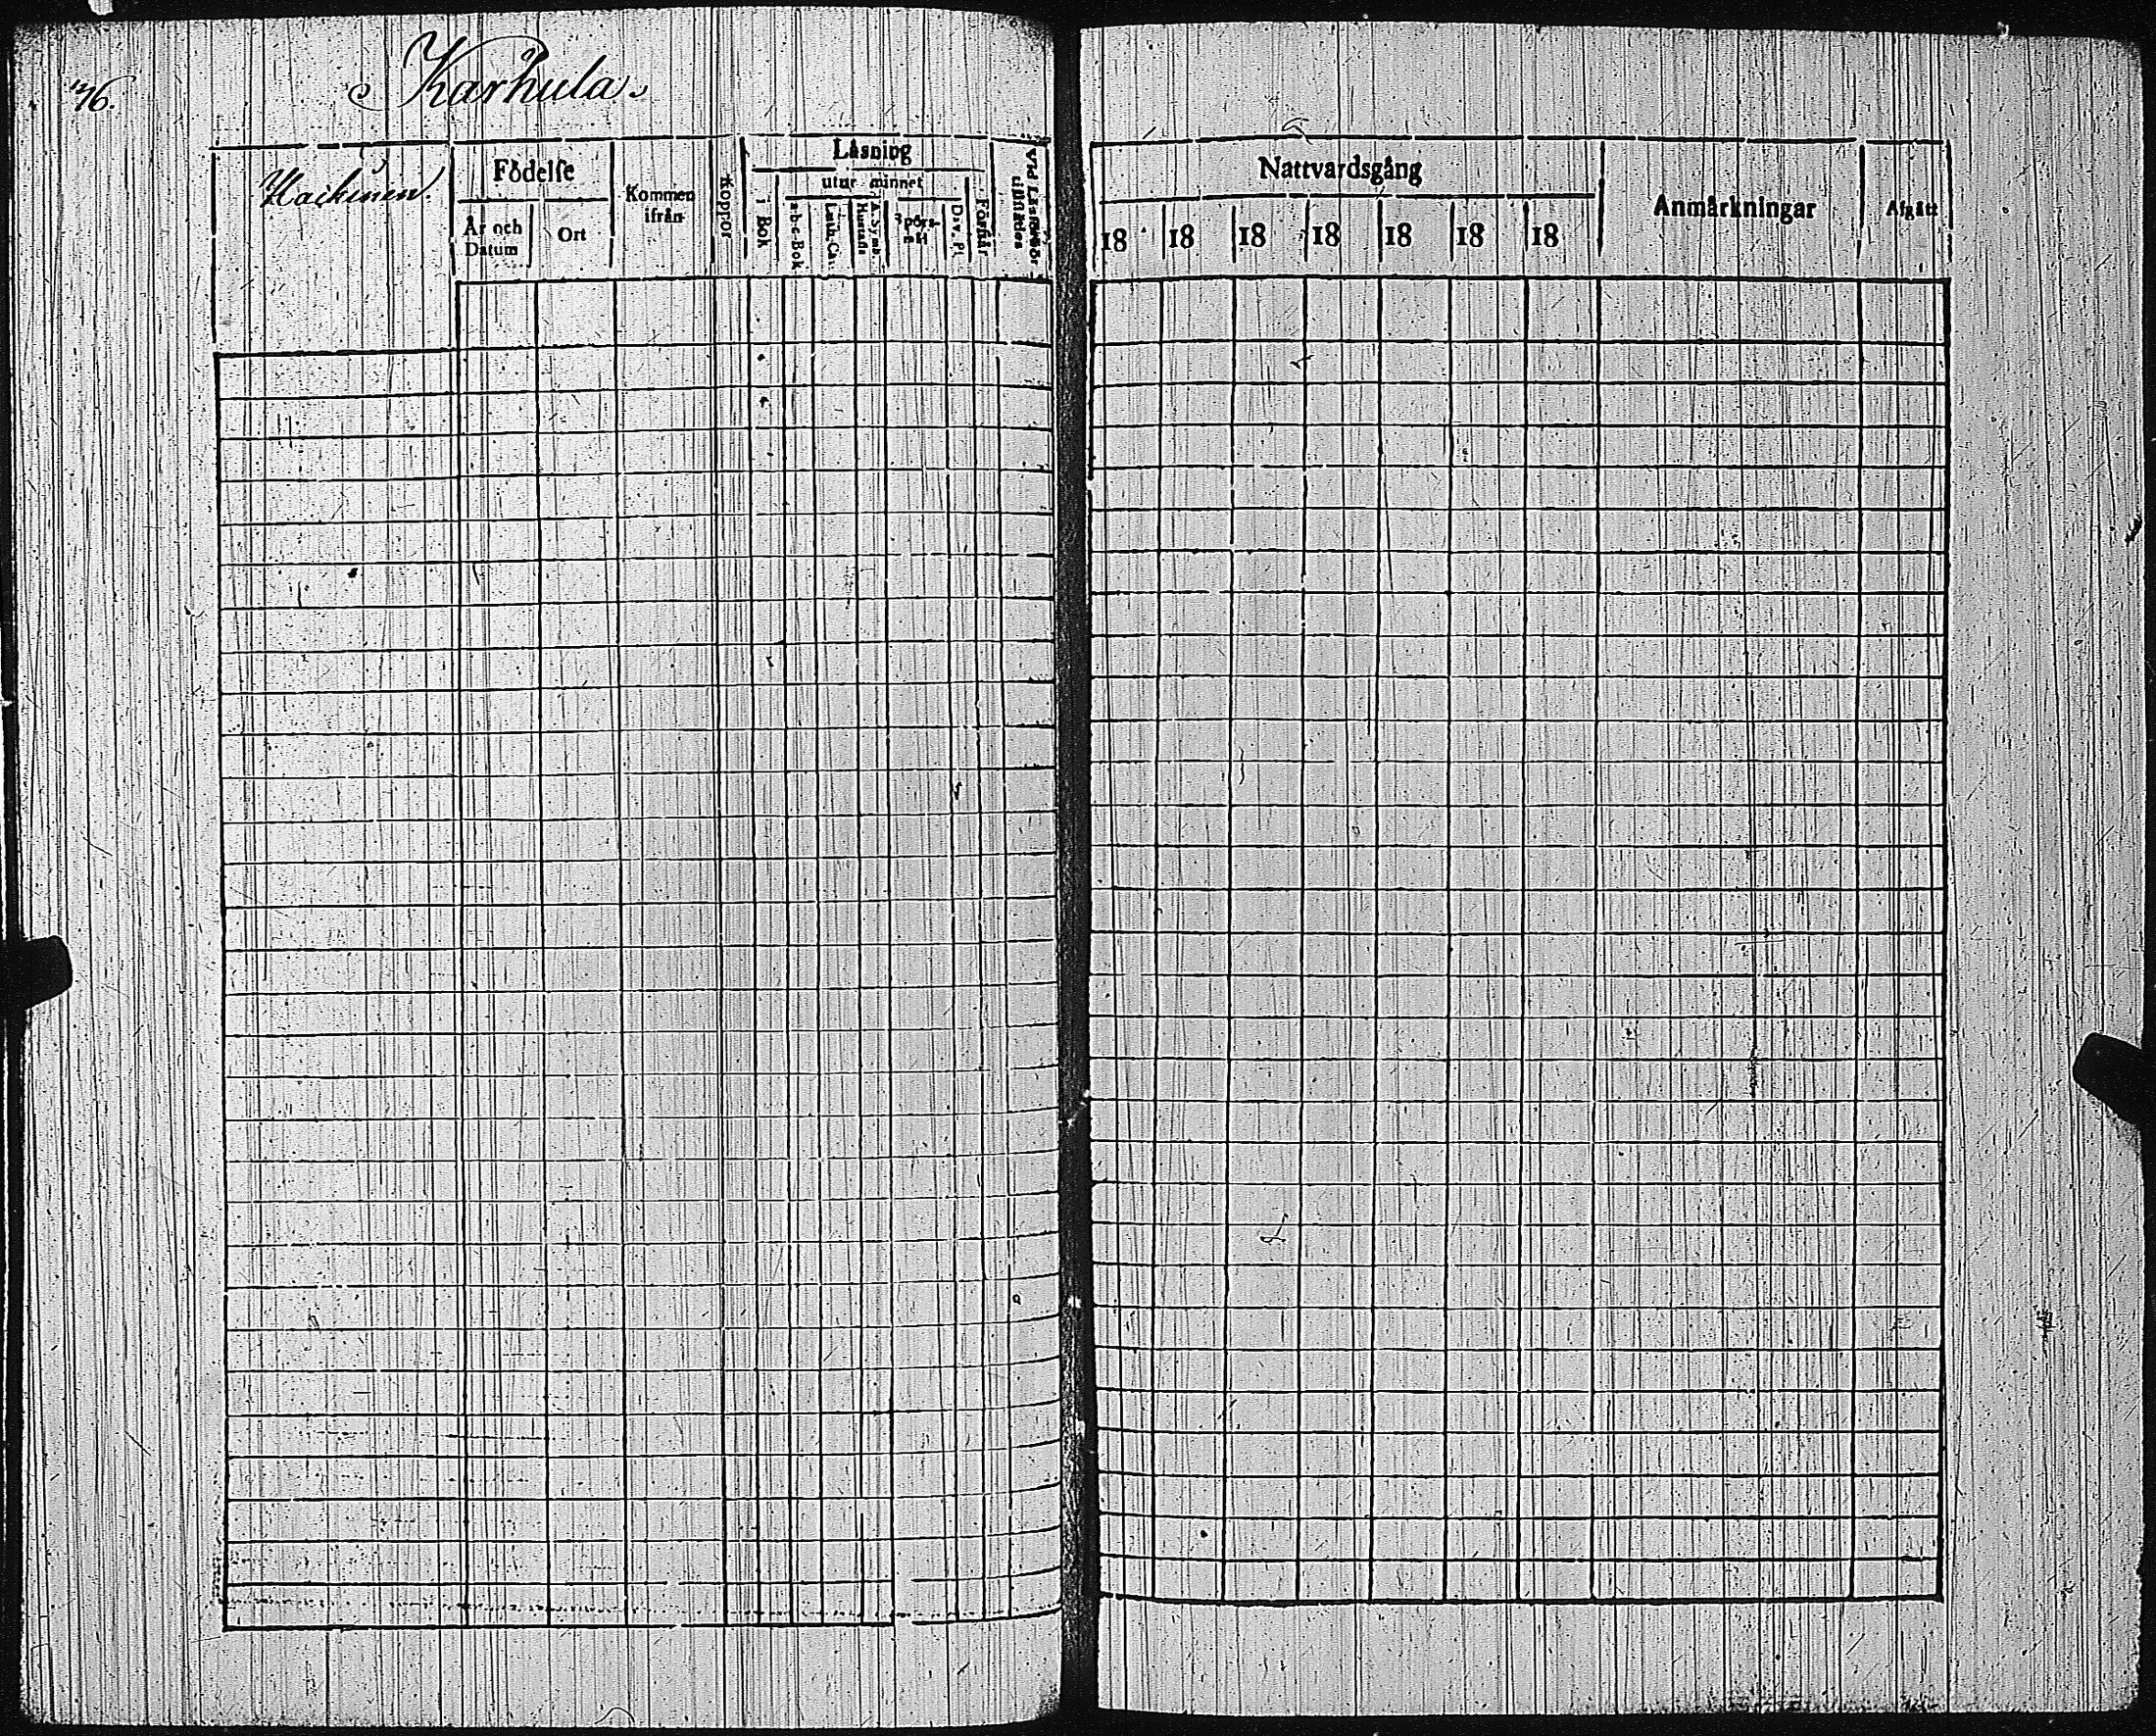 76.
Karhula.
Hackinen.
Födelse
År och
Datum
Ort
Kommen
ifrån
Koppor
Läsning
utur minnet
i Bok
a-b-c-Bok
Luth. Ca.
Hustafl
A. Symb.
Spörs-
mål
Dav. Ps
Förstår
Vid Läsförhör
tillstädes
Nattvardsgång
18 18 18 18 18 18 18
Anmärkningar
Afgått